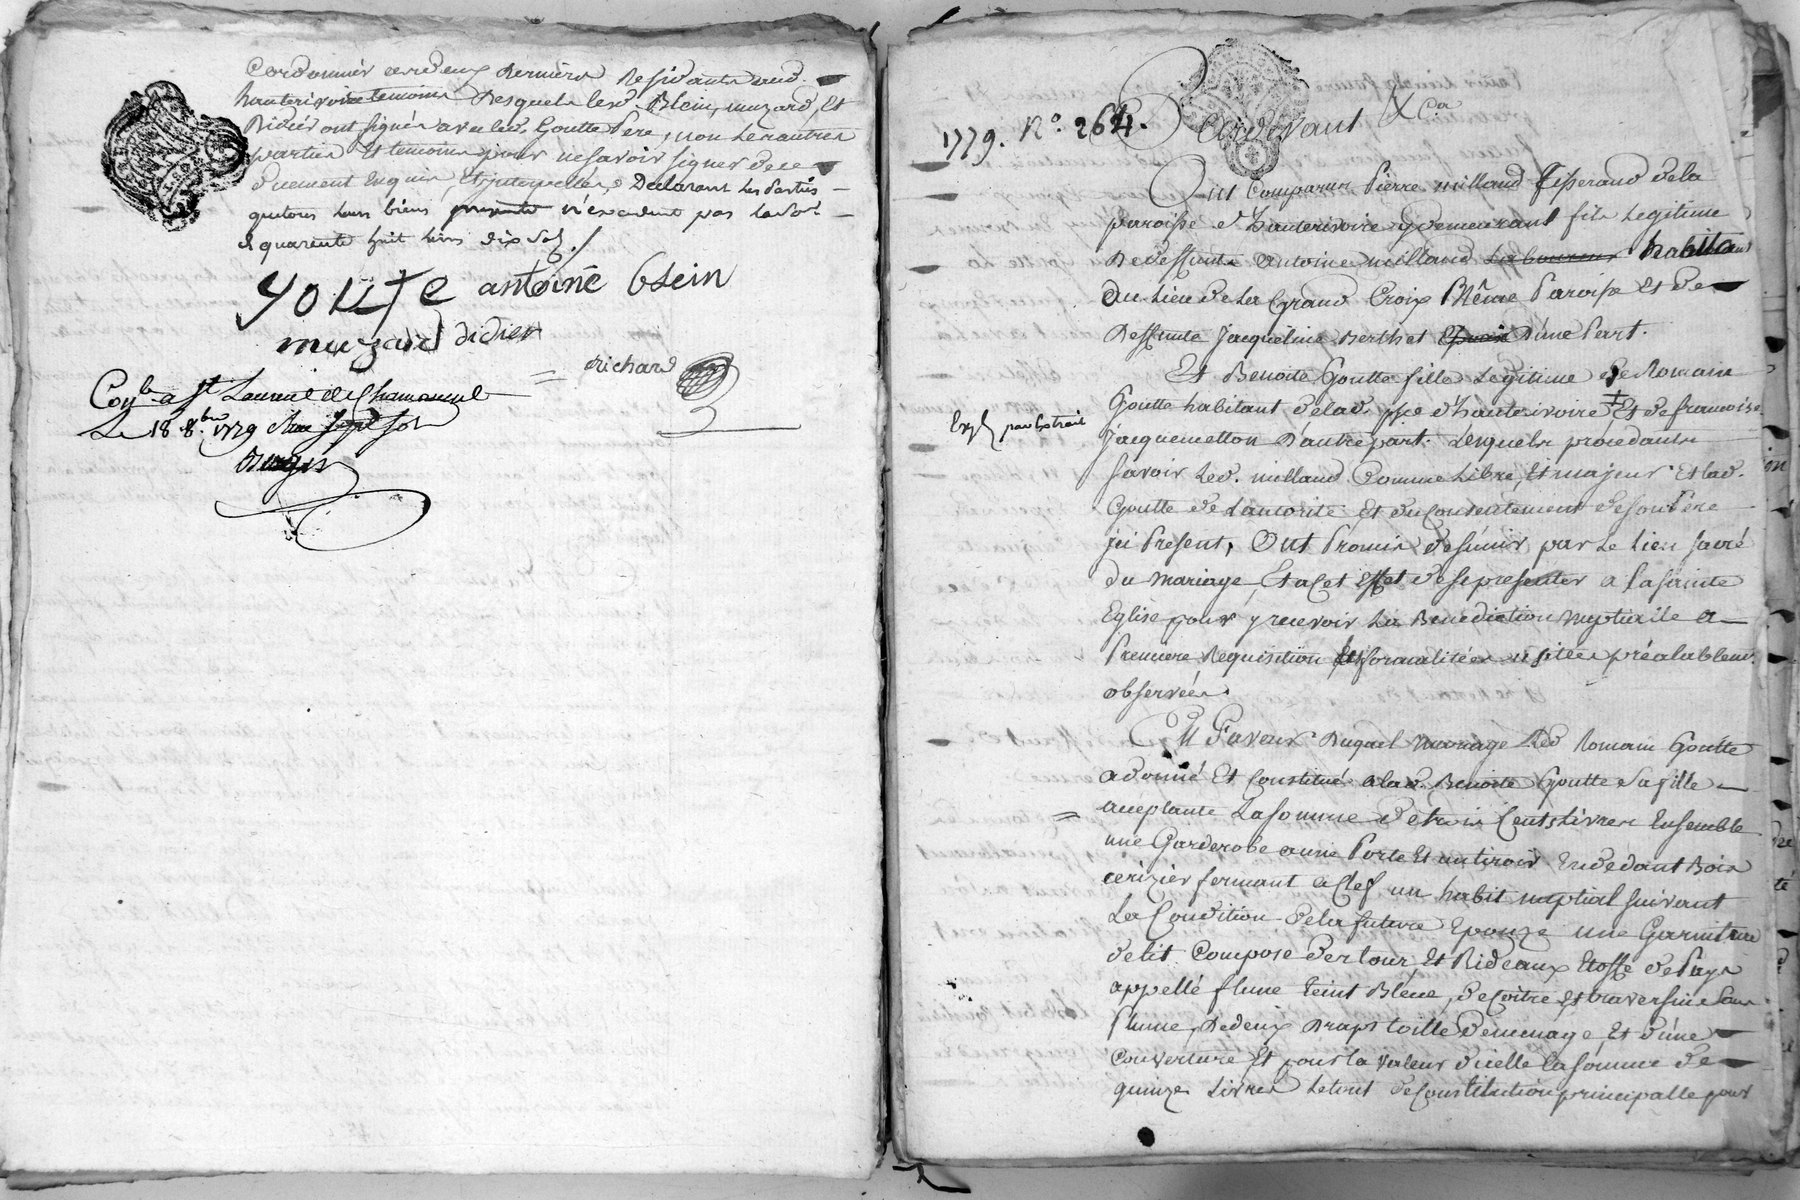 Cordonnier ces deux derniers Residants aud.
hauterivoire temoins desquels lesd. Blein, muzard, Et
Didier ont signés avec led. Goutte Pere, non les autres
parties Et temoins pour ne savoir signer de ce
duement Enquis, Et interpellés, Declarant les Parties
que tous leurs biens n'excedent pas la So.
de quarente huit livres dix Sols./.
goutte antoine blein
muzard didier
richard
Con.le a St Laurent de Chamousset
Le 18 8.bre 1779
1779. N.o 264.
Pardevant &.Ca
Ont Comparus Pierre millaud Tisserand de la
paroisse d'hauterivoire y demeurant fils Legitime
De deffunts Antoine millaud Laboureur habitant
Du Lieu de La Grand Croix Même Paroisse Et de
Deffunte Jacqueline Berthet D'une Part.
Et Benoite Goutte fille Legitime de Romain
Goutte habitant de lad. psse d'hauterivoire Et de francoise
Exp. par Extrait
Jacquemetton D'autre part. Lesquels procedants
savoir Led. millaud Comme Libre, Et majeur Et lad.
Goutte de Lautorité Et du Consentement de son Pere
ici Present, Ont Promis de s'unir par Le Lien sacré
du Mariage, Et a Cet Effet de se presenter a la sainte
Eglise pour y recevoir La Benediction Nuptialle a
Premiere Requisition Les formalitées usitées préalablem.
observées.
En Faveur Duquel mariage Led Romain Goutte
a donné Et Constitué a lad. Benoite Goutte sa fille
acceptante La somme de trois Cents Livres Ensemble
une Garderobe a une Porte Et un tiroir En dedant Bois
cerizier fermant a Clef un habit nuptial suivant
La Condition de la future Epouze une Garniture
de lit Composé d'un tour Et Rideaux Etoffe de Pays
appellé flene teint Bleue, de Coitre Et traversin Sans
Plume, De deux Draps toille De menage, Et d'une
Couverture Et pour la valeur d'icelle la somme de
quinze Livres Le tout de Constitution principalle pour